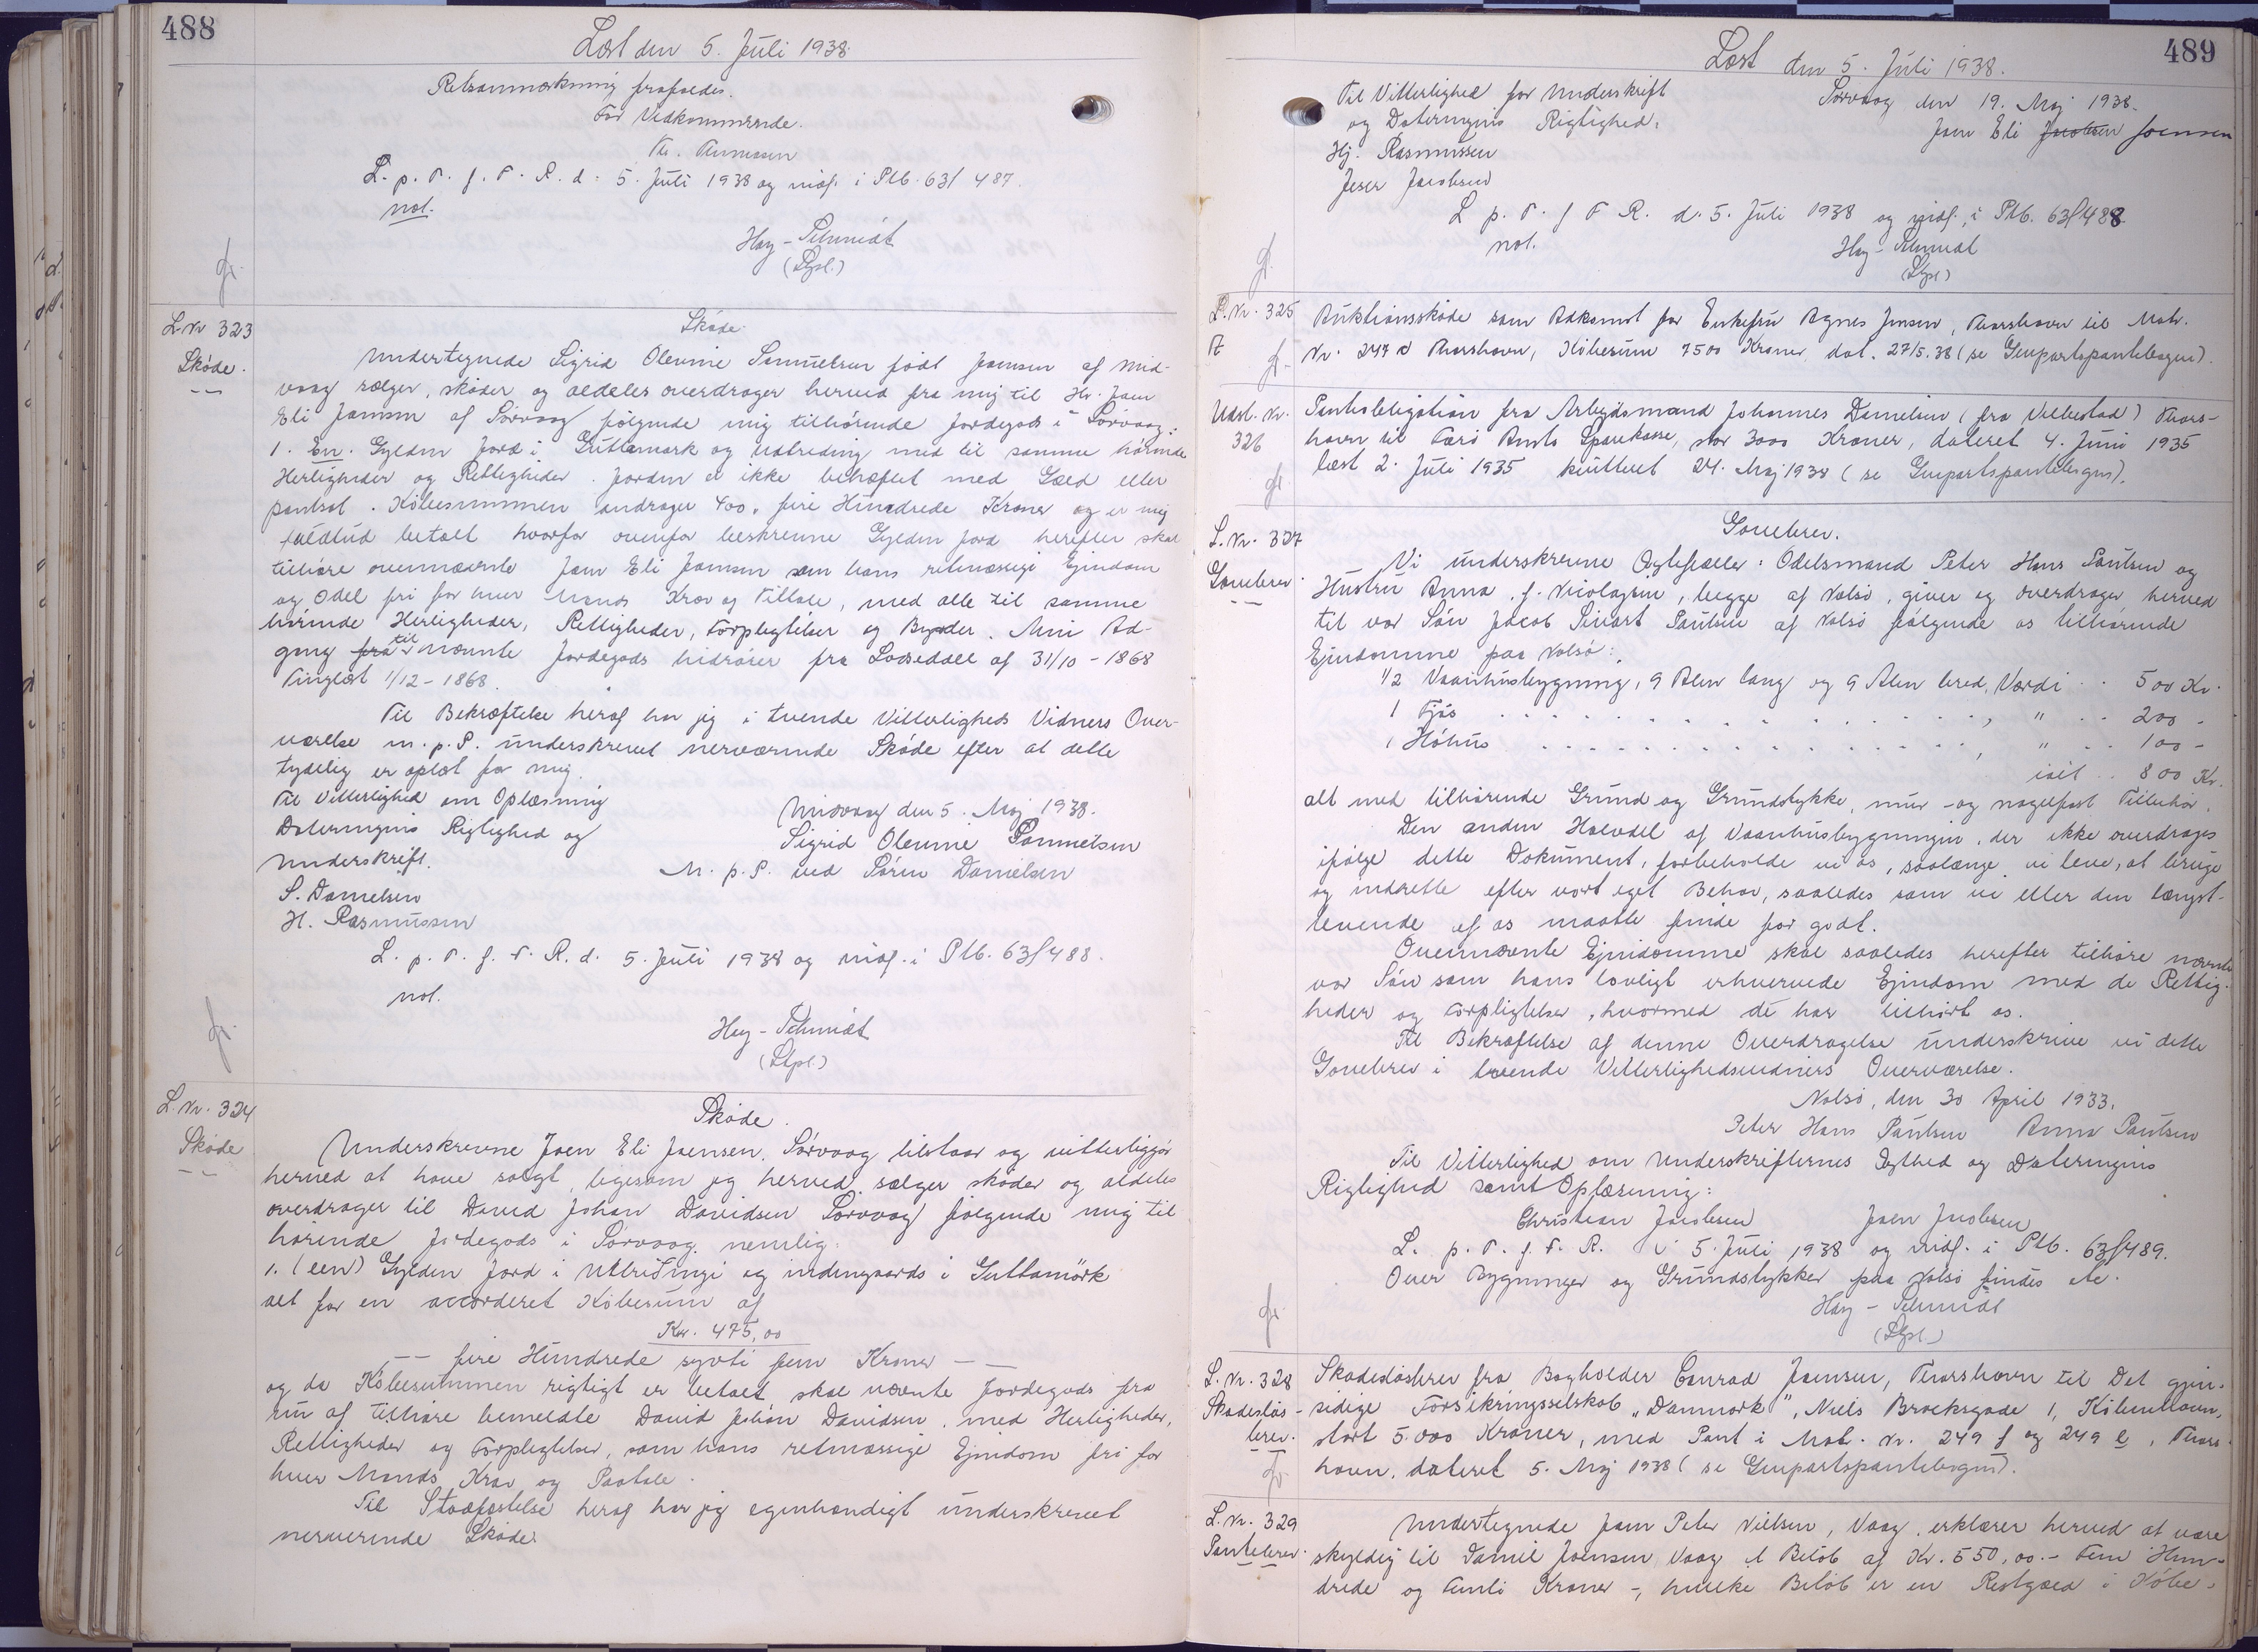 488
Læst den 5. Juli 1938.
Retsanmærkning frafaldes.
For Vedkommende.
L. p. T. f. F. R. d. 5. Juli 1938 og indf. i Ptb. 63f 487.
not.
Hey-Schmidt
(Stpl.)
gr.
L. Nr 323
Skøde.
Skøde
Undertegnede Sigrid Olevine Samuelsen født Joensen af Mid-
vaag sælger, skøder og aldeles overdrager herved fra mig til Hr. Joen
Eli Joensen af Sörvaag følgende mig tilhörende Jordegods i Sörvaag:
1. En. Gylden Jord i Guttamørk og Udtreding med til samme hörende
Herligheder og Rettigheder. Jorden er ikke behæftet med Gæld eller
pantsat. Köbesummen andrager 400. fire Hundrede Kroner og er mig
fuldtud betalt hvorfor ovenfor beskrevne Gylden Jord herefter skal
tilhöre ovennævnte Joen Eli Joensen som hans retmæssige Ejendom
og Odel fri for hver Mands Krav og Tiltale, med alle til samme
hörende Herligheder, Rettigheder, Forpligtelser og Byrder. Min Ad-
gang fra til nævnte Jordegods hidrörer fra Lodseddel af 31/10 - 1868
Tinglæst 1/12 - 1868.
Til Bekræftelse heraf har jeg i tvende Vitterligheds Vidners Over-
værelse m. p. P. underskrevet nærværende Skøde efter at dette
tydelig er oplæst for mig.
Til Vitterlighed om Oplæsning
Dateringens Rigtighed og
Underskrift.
S. Danielsen
H. Rasmussen
Midvaag den 5. Maj 1938.
Sigrid Olevine Samuelsen
M. p. P. ved Sören Danielsen
L. p. T. f. F. R. d. 5. Juli 1938 og indf. i Ptb. 63f 488.
not.
Hey-Schmidt
(Stpl.)
gr.
L. Nr. 324
Skøde
Skøde.
Underskrevne Joen Eli Joensen, Sörvaag tilstaar og vitterliggör
herved at have solgt, ligesom jeg herved sælger skøder og aldeles
overdrager til David Johan Davidsen Sörvaag følgende mig til
hörende Jordegods i Sörvaag nemlig:
1. (een) Gylden Jord i Uttridingi og indengaards i Guttamörk
alt for en accorderet Köbesum af
Kr. 475,00
-- fire Hundrede syvti fem Kroner --
og da Köbesummen rigtigt er betalt skal nævnte Jordegods fra
nu af tilhöre bemeldte David Johan Davidsen, med Herligheder,
Rettigheder og Forpligtelser, som hans retmæssige Ejendom fri for
hver Mands Krav og Paatale.
Til Stadfæstelse heraf har jeg egenhændigt underskrevet
nærværende Skøde.
489
Læst den 5. Juli 1938.
Til Vitterlighed for Underskrift
og Dateringens Rigtighed:
Hj. Rasmussen
Jacobsen
Sörvaag den 19. Maj 1938.
Joen Eli Jacobsen Joensen
L p. T. f F R. d. 5. Juli 1938 og indf. i Ptb. 63f 488
not.
Hey-Schmidt
(Stpl)
gr.
L. Nr. 325
Auktionsskøde som Adkomst for Enkefru Agnes Jensen, Thorshavn til Matr.
Nr. 247 d Thorshavn, Köbesum 7500 Kroner, dat. 27/5. 38 (se Genpartspantebogen).
gr.
Udsl. Nr.
326
Pantobligation fra Arbejdsmand Johannes Danielsen (fra Velbestad) Thors-
havn til Færö Amts Sparekasse, stor 3000 Kroner, dateret 4. Juni 1935
læst 2. Juli 1935 kvitteret 24. Maj 1938 (se Genpartspantebogen).
gr.
L. Nr. 327
Gavebrev.
Gavebrev.
Vi underskrevne Ægtefæller: Odelsmand Peter Hans Poulsen og
Hustru Anna, f. Nicolajsen, begge af Nolsö, giver og overdrager herved
til vor Sön Jacob Sivert Poulsen af Nolsö følgende os tilhörende
Ejendomme paa Nolsö:
1/2 Vaanhusbygning, 9 Alen lang og 9 Alen bred, Værdi .. 500 Kr.
1 Fjós . . . . . . . . . . , " .. 200 -
1 Höhus . . . . . . . . . . , " .. 100 -
ialt .. 800 Kr.
alt med tilhörende Grund og Grundstykke, mur- og nagelfast Tilbehör.
Den anden Halvdel af Vaanhusbygningen, der ikke overdrages
ifølge dette Dokument, forbeholde vi os, saalænge vi leve, at bruge
og indrette efter vort eget Behov, saaledes som vi eller den længst-
levende af os maatte finde for godt.
Ovennævnte Ejendomme skal saaledes herefter tilhöre nævnte
vor Sön som hans lovligt erhvervede Ejendom med de Rettig-
heder og Forpligtelser, hvormed de har tilhört os.
Til Bekræftelse af denne Overdragelse underskrive vi dette
Gavebrev i tvende Vitterlighedsvidners Overværelse.
Nolsö, den 30 April 1933.
Peter Hans Poulsen Anna Poulsen
Til Vitterlighed om Underskrifternes Ægthed og Dateringens
Rigtighed samt Oplæsning:
Christian Jacobsen Joen Jacobsen
L. p. T. f. F. R. d. 5. Juli 1938 og indf. i Ptb. 63f 489.
Over Bygninger og Grundstykker paa Nolsö findes etc.
Hey-Schmidt
(Stpl.)
gr.
L. Nr. 328
Skadeslös-
brev.
Skadeslösbrev fra Bogholder Conrad Joensen, Thorshavn til Det gjen-
sidige Forsikringsselskab "Danmark", Niels Brocksgade 1, Köbenhavn,
stort 5.000 Kroner, med Pant i Mat. Nr. 249 f og 249 e, Thors-
havn, dateret 5. Maj 1938 (se Genpartspantebogen).
gr.
L. Nr. 329
Pantebrev.
Undertegnede Joen Peter Nielsen, Vaag, erklærer herved at være
skyldig til Daniel Joensen Vaag et Belöb af Kr. 550,00.- Fem Hun-
drede og Femti Kroner -, hvilke Belöb er en Restgæld i Köbe-